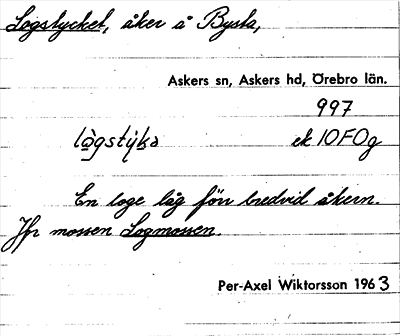 Logstycket, åker å Bysta,
Askers sn, Askers hd, Örebro län.
997
ek 10F0g
En loge låg förr bredvid åkern.
Jfr mossen Logmossen.
Per-Axel Wiktorsson 1963